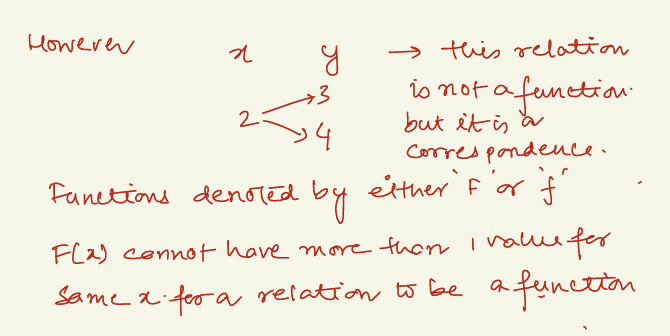 However x y → this relation
is not a function.
2 → 3
→ 4
but it is a
correspondence.
Functions denoted by either 'F' or 'f'
F(x) cannot have more than 1 value for
same x for a relation to be a function